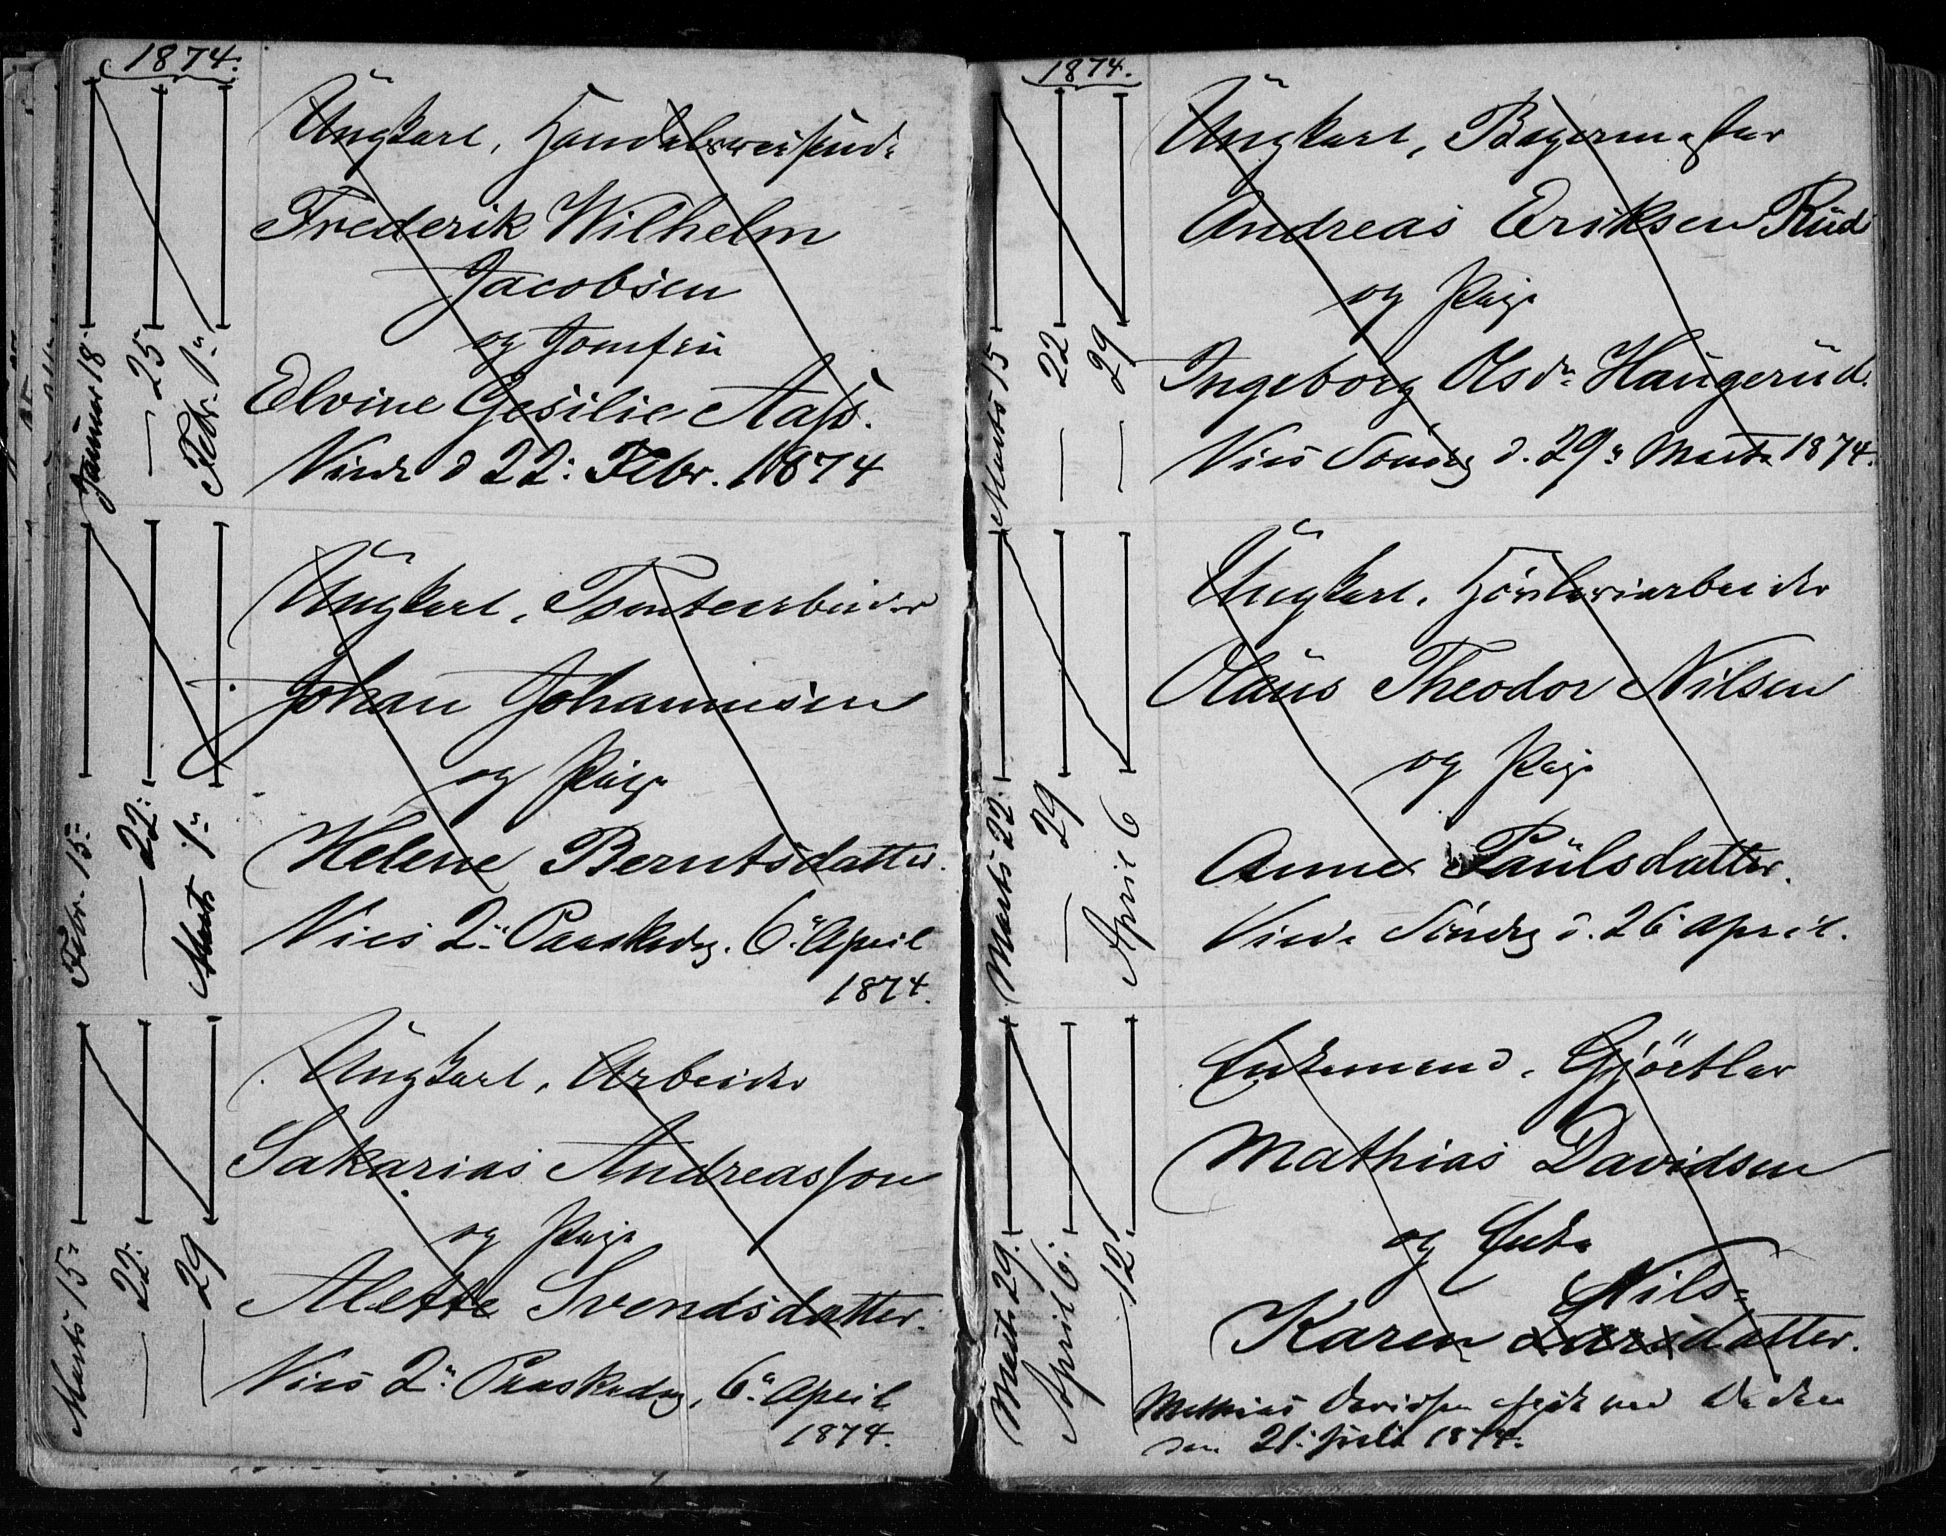 1874.
Januar 18.
— 25
Febr. 1ste
Ungkarl, Handelsreisende
Frederik Wilhelm
Jacobsen
og Jomfru
Elvine Cesilie Aass.
Viede d 22: Febr. 1874
Febr. 15:
— 22:
Marts 1:
Ungkarl, Tomtearbeider
Johan Johannesen
og Pige
Helene Berntsdatter.
Vies 2: Paaskedag. 6: April
1874.
Marts 15:
— 22:
— 29
Ungkarl, Arbeider
Sakarias Andreasson
og Pige
Alette Svendsdatter.
Vies 2: Paaskedag, 6: April
1874.
1874.
Marts 15
— 22
— 29
Ungkarl, Bagermester
Andreas Eriksen Rud
og Pige
Ingeborg Olsdr Haugerud.
Vies Søndag d. 29: Marts 1874.
Marts 22:
— 29
April 6
Ungkarl, Høvleriarbeider
Olaus Theodor Nilsen
og Pige
Anne Paulsdatter.
Viede Søndag d. 26 April.
Marts 29.
April 6:
— 12.
Enkemand, Gjørtler
Mathias Davidsen
og Enke
Nils=
Karen Larsdatter.
Mathias Davidsen afgik ved Døden
den 21: Juli 1874.